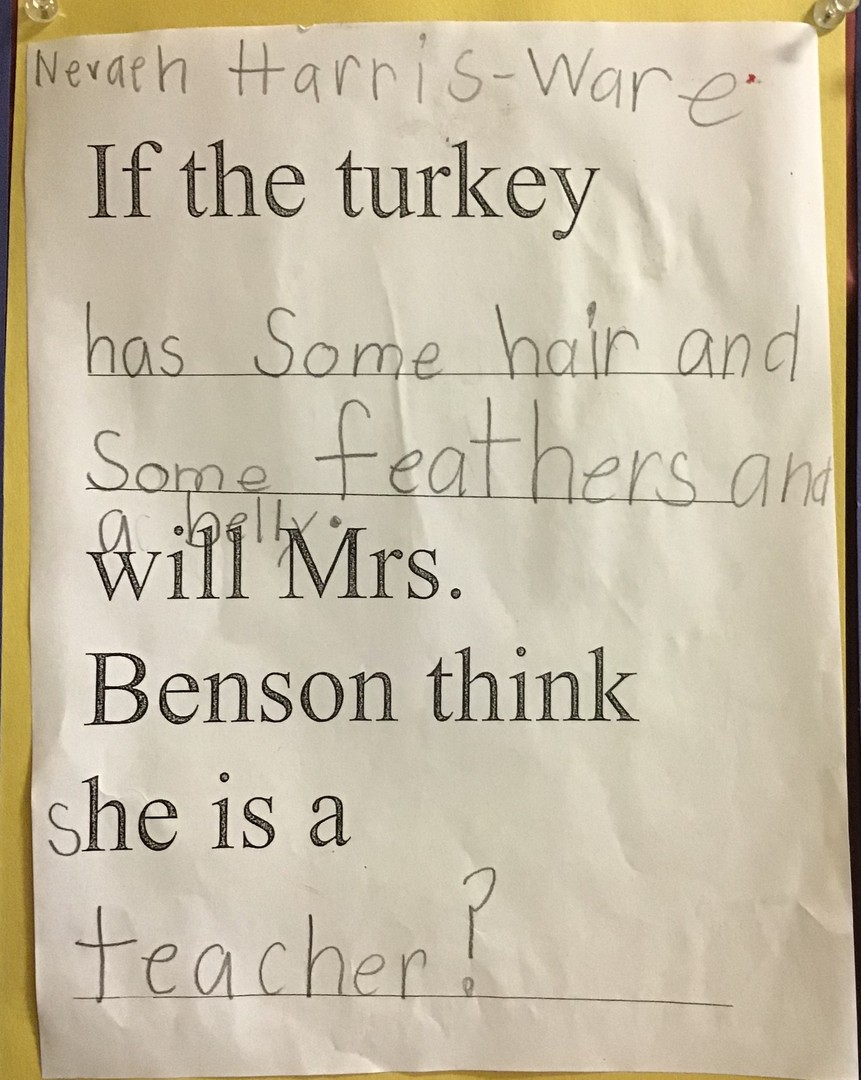 Nevaeh Harris-Ware
If the turkey
has Some hair and
Some feathers and
a belly.
will Mrs.
Benson think
she is a
teacher?